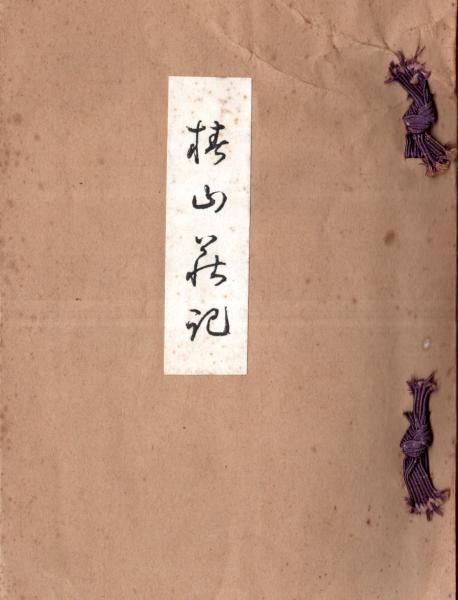 椿山荘記